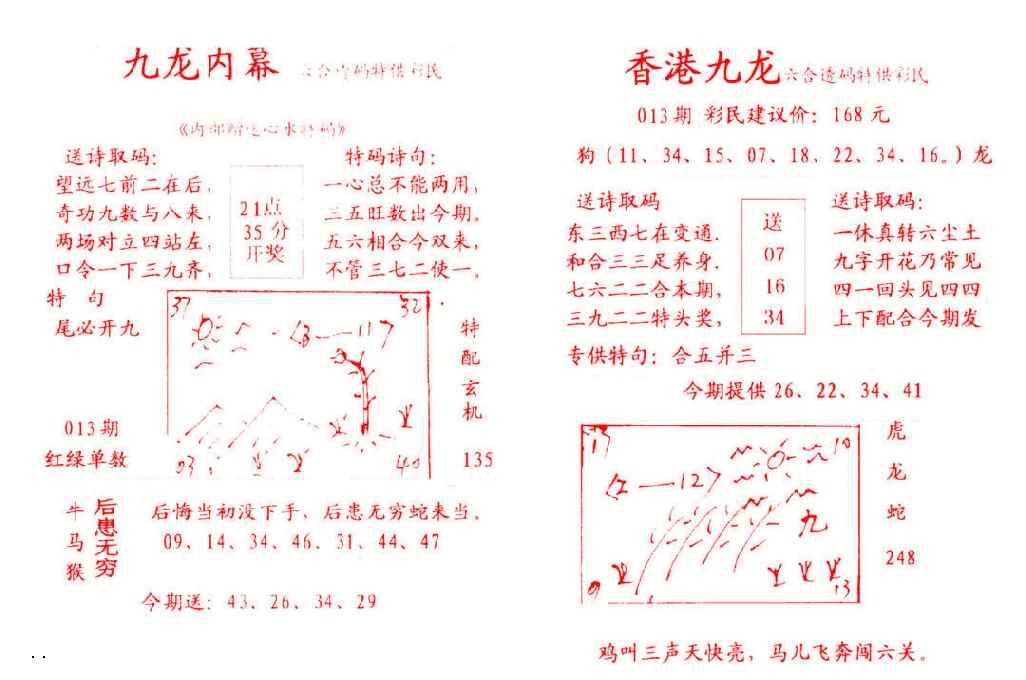 九龙内幕
六合内码特供彩民
送诗取码:
望远七前二在后,
奇功九数与八来,
两场对立四站左,
口令一下三九齐,
特 句
尾必开九
21点
35分
开奖
特码诗句:
一心总不能两用,
三五旺数出今期。
五六相合今双来,
不管三七二使一。
37
32
11
03
40
特
配
玄
机
135
013期
红绿单数
牛
马
猴
后患无穷
后悔当初没下手, 后患无穷蛇来当。
09、14、34、46、31、44、47
今期送: 43、26、34、29
香港九龙
六合透码特供彩民
013期 彩民建议价: 168元
狗(11、34、15、07、18、22、34、16。)龙
送诗取码
东三西七在变通.
和合三三足养身.
七六二二合本期,
三九二二特头奖,
送
07
16
34
送诗取码:
一休真转六尘土
九字开花乃常见
四一回头见四四
上下配合今期发
专供特句: 合五并三
今期提供26、22、34、41
13
10
12
九
9
13
虎
龙
蛇
248
鸡叫三声天快亮, 马儿飞奔闯六关。